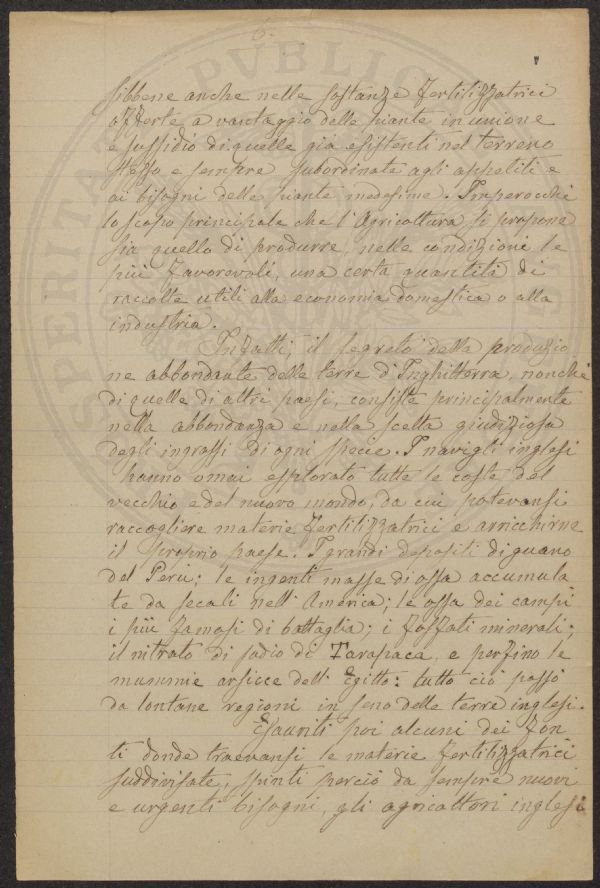 6.
sibbene anche nelle sostanze fertilizzatrici
offerte a vantaggio delle piante in unione
e sussidio di quelle già esistenti nel terreno
stesso e sempre subordinate agli appetiti e
ai bisogni delle piante medesime. Imperocchè
lo scopo principale che l'Agricoltura si propone
sia quello di produrre, nelle condizioni le
più favorevoli, una certa quantità di
raccolte utili alla economia domestica o alla
industria.
Infatti, il segreto della produzio
ne abbondante delle terre d'Inghilterra, nonchè
di quelle di altri paesi, consiste principalmente
nella abbondanza e nella scelta giudiziosa
degli ingrassi di ogni specie. I navigli inglesi
hanno omai esplorato tutte le coste del
vecchio e del nuovo mondo, da cui potevansi
raccogliere materie fertilizzatrici e arricchirne
il proprio paese. I grandi depositi di guano
del Perù; le ingenti masse di ossa accumula
te da secoli nell'America; le ossa dei campi
i più famosi di battaglia; i fosfati minerali;
il nitrato di sodio di Tarapaca, e perfino le
mummie arsicce dell'Egitto: tutto ciò passò
da lontane regioni in seno delle terre inglesi.
Esauriti poi alcuni dei fon
ti donde traevansi le materie fertilizzatrici
suddivisate, spinti perciò da sempre nuovi
e urgenti bisogni, gli agricoltori inglesi